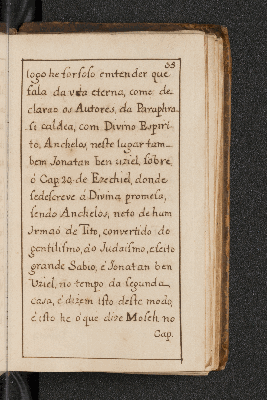 38
logo he forsoso emtender que
fala da vida eterna, como de
clarao os Autores, da Paraphra
si caldea, com Divino Espiri-
to, Anchelos, neste lugar tam-
bem Jonatan ben uziel, sobre,
o Cap. 20 de Ezechiel, donde
sedescreve a Divina promesa,
sendo Anchelos, neto de hum
Irmaõ de Tito, convertido do
gentilismo, ao Judaismo, e feito
grande Sabio, é Jonatan ben
Uziel, no tempo da segunda
casa, é dizem isto deste modo,
é isto he o que dize Moseh no
Cap.